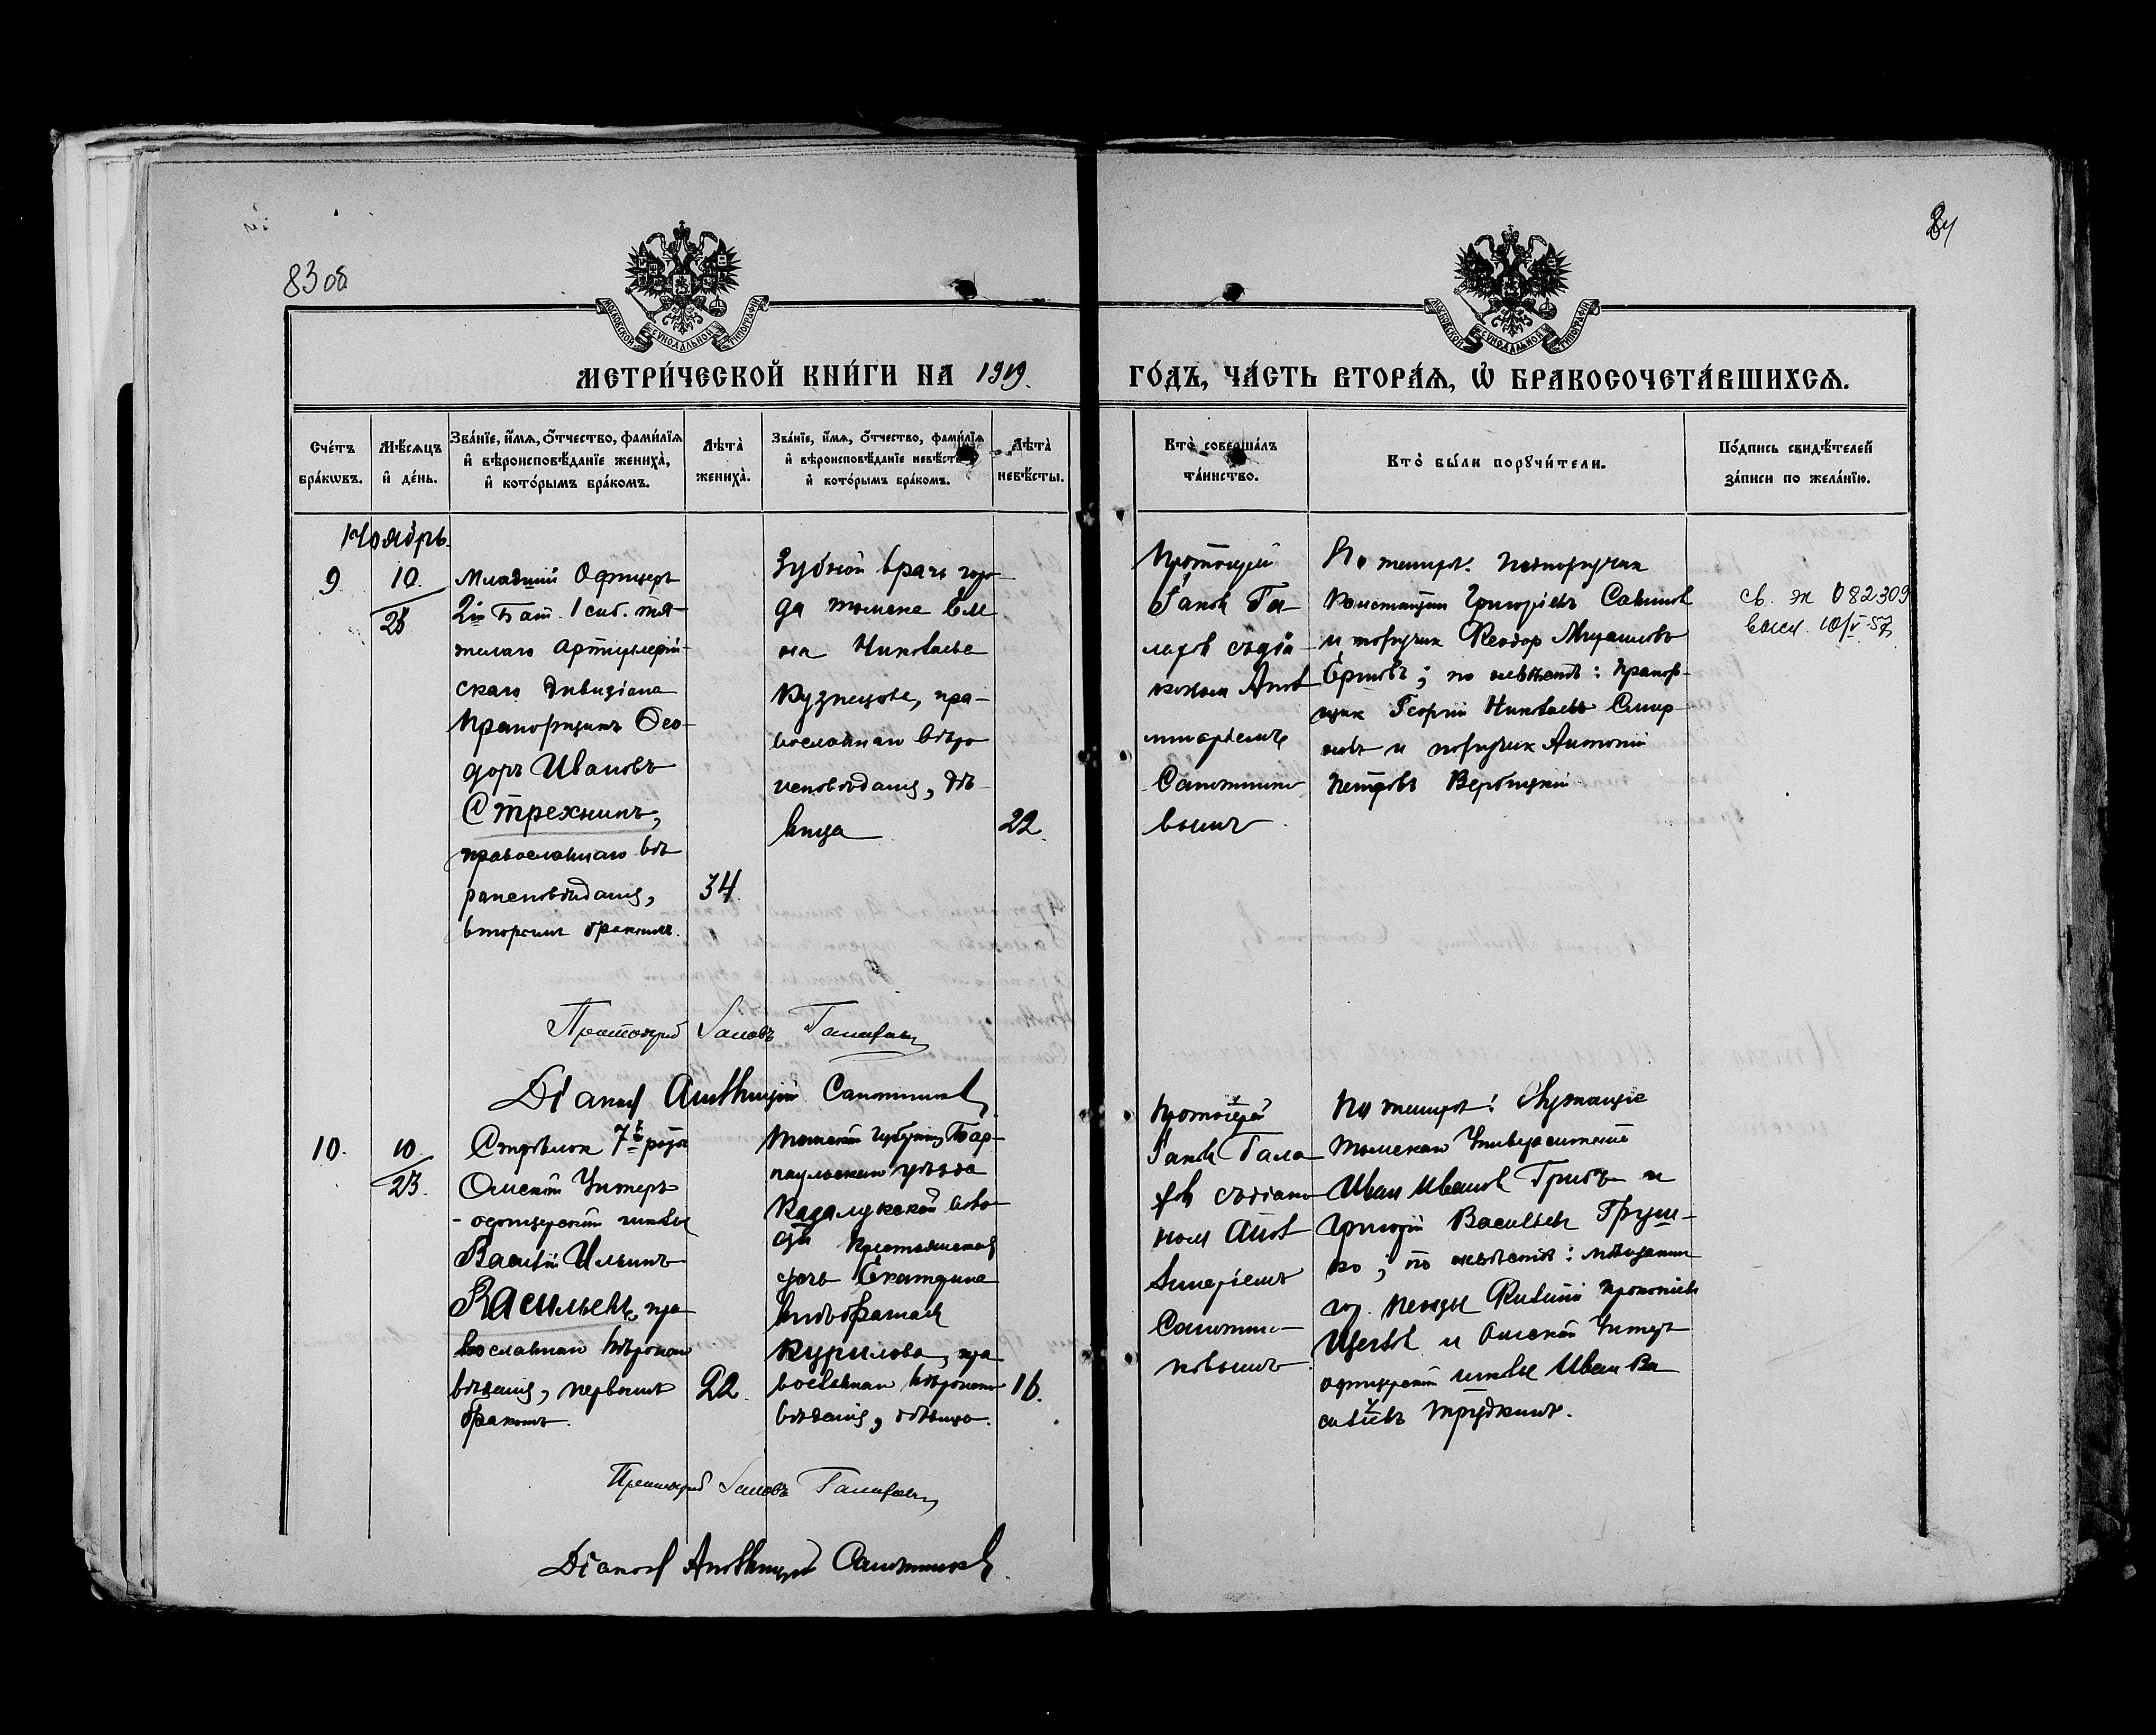 83 об
84
МЕТРИ́ЧЕСКОЙ КНИ́ГИ НА 1919.
ГО́ДЪ, ЧА́СТЬ ВТОРА́Я, Ѡ БРАКОСОЧЕТА́ВШИХСѦ.
Сче́тъ бра́кѡвъ.
Мѣ́сѧцъ и҆ де́нь.
Зва́нїе, и҆́мѧ, ѻ҆́тчество, фами́лїѧ
и҆ вѣроисповѣ́данїе жениха̀,
и҆ кото́рымъ бра́комъ.
Лѣта̀ жениха̀.
Зва́нїе, и҆́мѧ, ѻ҆́тчество, фами́лїѧ
и҆ вѣроисповѣ́данїе невѣ́сты
и҆ кото́рымъ бра́комъ.
Лѣта̀ невѣ́сты.
Кто̀ соверша́лъ
та́инство.
Кто̀ бы́ли порꙋчи́тели.
По́дпись свидѣ́телей
за́писи по жела́нїю.
Ноябрь.
9.
10.
Младшій Офицеръ
2й Бат. 1 сиб. тя-
желаго артиллерій-
скаго дивизіона
Прапорщикъ Ѳео-
доръ Ивановъ
Стрехнинъ,
православнаго вѣ
роисповѣданія,
вторымъ бракомъ.
34.
Зубной врачъ горо-
да Томска
на Николаева
Кузнецова, пра-
вославнаго вѣро
исповѣданія, дѣ-
вица
22.
Протоіерей
Іаковъ Га-
ларовъ съ діа-
кономъ
Сапожнико
вымъ
По женихѣ: подпоручикъ
Константинъ Григорьевъ Савинов
и поручикъ Ѳеодоръ
по невѣстѣ: прапор-
щик Георгій Николаевъ Смир-
новъ и поручик Антоній
Петровъ Вербицкій
св. № 082309
выд. 10/V-57
Протоіерей Іаковъ Галаховъ
Діаконъ Сапожников
10.
10
23.
Стрѣлок 7й роты
Омской Унтеръ
-офицерской школы
Василій Ильинъ
Васильевъ, пра
вославнаго вѣроиспо
вѣданія, первымъ
бракомъ.
22.
Томской губерніи Бар-
наульскаго уѣзда
воло
сти крестьянская
дочь Екатерина
Курилова, пра
вославнаго вѣроиспо
вѣданія, дѣвица.
16.
Протоіерей
Іаковъ Гала
ховъ съ діако
ном
Сапожни-
ковымъ
По женихѣ: Служащіе
Томскаго Университета
Иван Иванов Грибъ и
Григорій Васильевъ Груш-
ко; по невѣстѣ: мѣщанин
гор. Пензы Прокопіевъ
и Омской Унтеръ
офицерской школы Иван Ва
сильевъ Трудкинъ.
Протоіерей Іаковъ Галаховъ
Діаконъ Сапожников